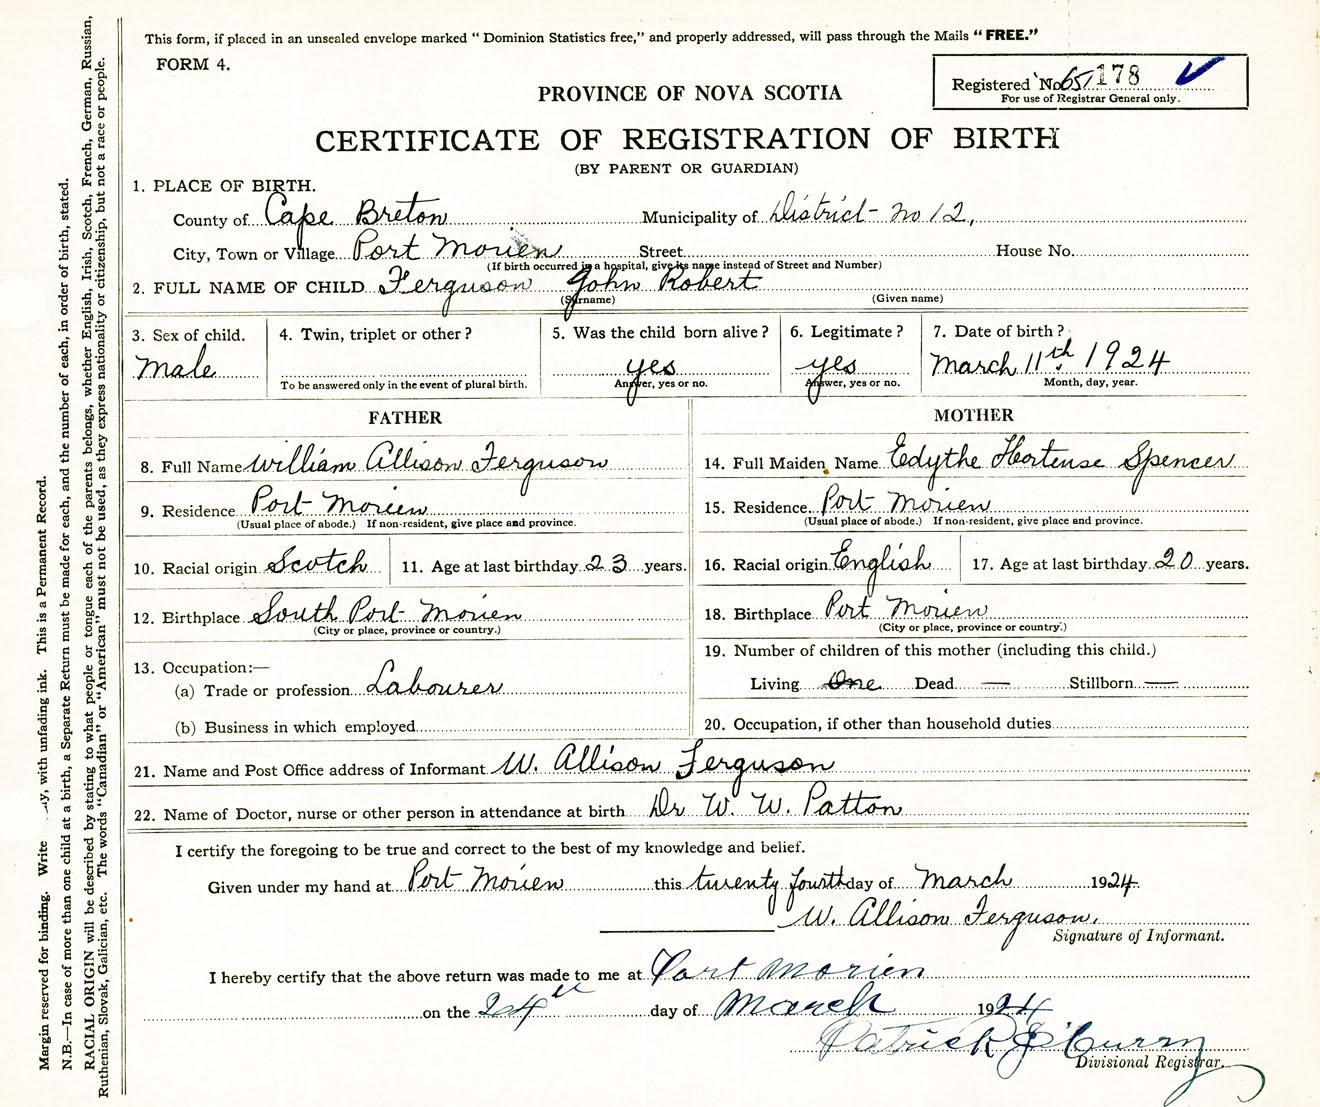 This form, if placed in an unsealed envelope marked “ Dominion Statistics free,” and properly addressed, will pass through the Mails “ FREE.”
FORM 4.
Registered No. 651178
For use of Registrar General only.
PROVINCE OF NOVA SCOTIA
CERTIFICATE OF REGISTRATION OF BIRTH
(BY PARENT OR GUARDIAN)
1. PLACE OF BIRTH.
County of Cape Breton Municipality of District - No 12,
City, Town or Village Port Morien Street House No.
(If birth occurred in a hospital, give its name instead of Street and Number)
2. FULL NAME OF CHILD Ferguson John Robert
(Surname) (Given name)
3. Sex of child. 4. Twin, triplet or other? 5. Was the child born alive? 6. Legitimate? 7. Date of birth?
Male yes yes March 11th 1924
To be answered only in the event of plural birth. Answer, yes or no. Answer, yes or no. Month, day, year.
FATHER
8. Full Name William Allison Ferguson
9. Residence Port Morien
(Usual place of abode.) If non-resident, give place and province.
10. Racial origin Scotch 11. Age at last birthday 23 years.
12. Birthplace South Port Morien
(City or place, province or country.)
13. Occupation:—
(a) Trade or profession Labourer
(b) Business in which employed
MOTHER
14. Full Maiden Name Edythe Hortense Spencer
15. Residence. Port Morien
(Usual place of abode.) If non-resident, give place and province.
16. Racial origin English 17. Age at last birthday 20 years.
18. Birthplace Port Morien
(City or place, province or country.)
19. Number of children of this mother (including this child.)
Living One Dead — Stillborn —
20. Occupation, if other than household duties
21. Name and Post Office address of Informant W. Allison Ferguson
22. Name of Doctor, nurse or other person in attendance at birth Dr W. W. Patton
I certify the foregoing to be true and correct to the best of my knowledge and belief.
Given under my hand at Port Morien this twenty fourth day of March 1924
W. Allison Ferguson.
Signature of Informant.
I hereby certify that the above return was made to me at Port Morien
on the 24th day of March 1924
Patrick J Curry
Divisional Registrar.
Margin reserved for binding. Write with unfading ink. This is a Permanent Record.
N.B.—In case of more than one child at a birth, a Separate Return must be made for each, and the number of each, in order of birth, stated.
RACIAL ORIGIN will be described by stating to what people or tongue each of the parents belongs, whether English, Irish, Scotch, French, German, Russian,
Ruthenian, Slovak, Galician, etc. The words “Canadian” or “American” must not be used, as they express nationality or citizenship, but not a race or people.